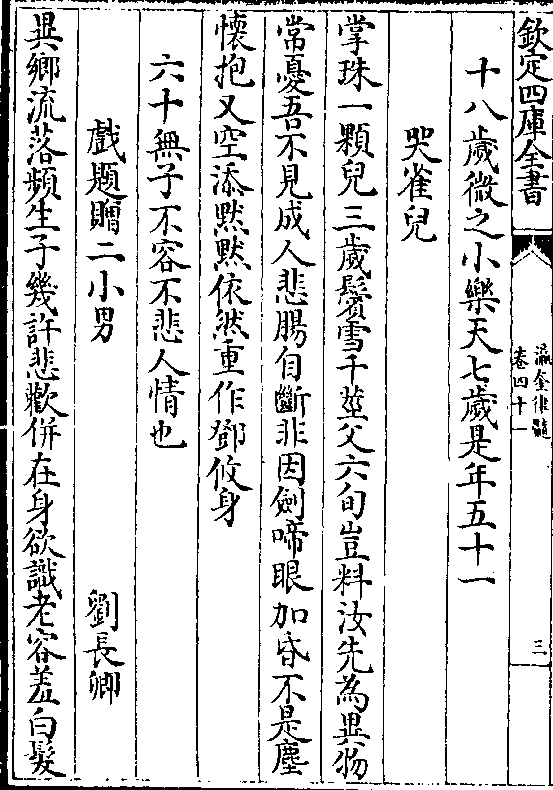 欽定四庫全書
瀛奎律髓
卷四十一
三
十八歲微之小樂天七歲是年五十一
哭崔兒
掌珠一顆兒三歲鬢雪千莖父六旬豈料汝先為異物
常憂吾不見成人悲腸自斷非因劍啼眼加昏不是塵
懷抱又空添黙黙依然重作鄧攸身
六十無子不容不悲人情也
戲題贈二小男 劉長卿
異鄉流落頻生子幾許悲歡併在身欲識老容羞白髮